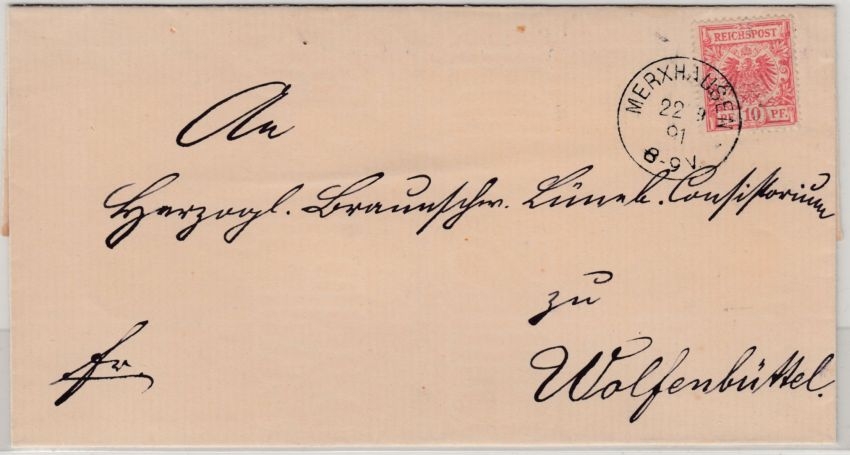 REICHSPOST
10 PF.
MERXHAUSEN
22 9
91
8-9 N.
An
Herzogl. Braunschw. Lüneb. Consistorium
zu
Wolfenbüttel.
fr.